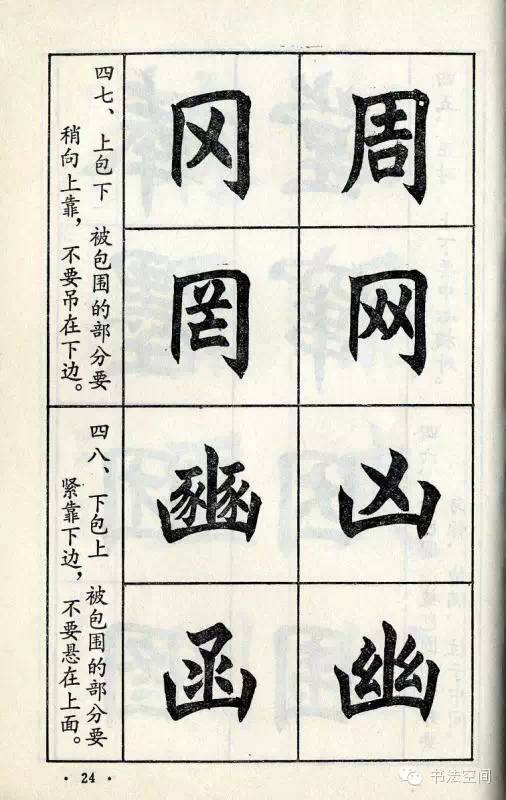 周
网
凶
幽
冈
罔
豳
函
四七、上包下 被包围的部分要
稍向上靠，不要吊在下边。
四八、下包上 被包围的部分要
紧靠下边，不要悬在上面。
· 24 ·
书法空间